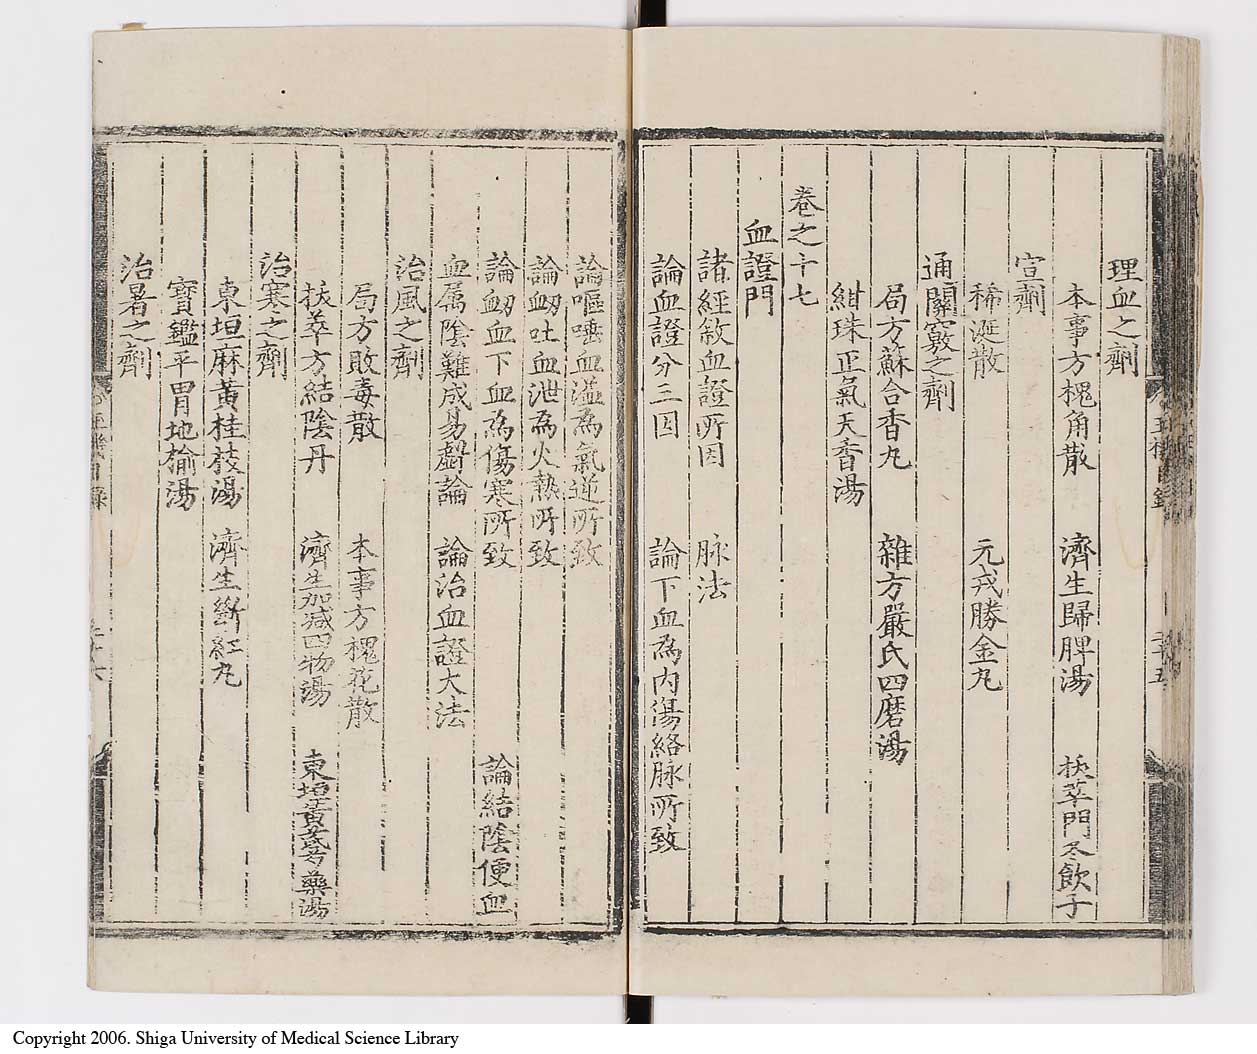 理血之劑
本事方槐角散　濟生歸脾湯　拔萃門冬飲子
宣劑
稀涎散　元戎勝金丸
通關竅之劑
局方蘇合香丸　雜方嚴氏四磨湯
紺珠正氣天香湯
卷之十七
血證門
諸經敘血證所因　脉法
論血證分三因　論下血為内傷絡脉所致
論嘔唾血溢為氣逆所致
論衂吐血泄為火熱所致
論衂血下血為傷寒所致　論結陰便血
血属陰難成昜虧論　論治血證大法
治風之劑
局方敗毒散　本事方槐花散
拔萃方結陰丹　濟生加减四物湯　東垣黄芪芍藥湯
治寒之劑
東垣麻黄桂枝湯　濟生斷紅丸
寳鑑平胃地榆湯
治暑之劑
玉機目錄
Copyright 2006. Shiga University of Medical Science Library